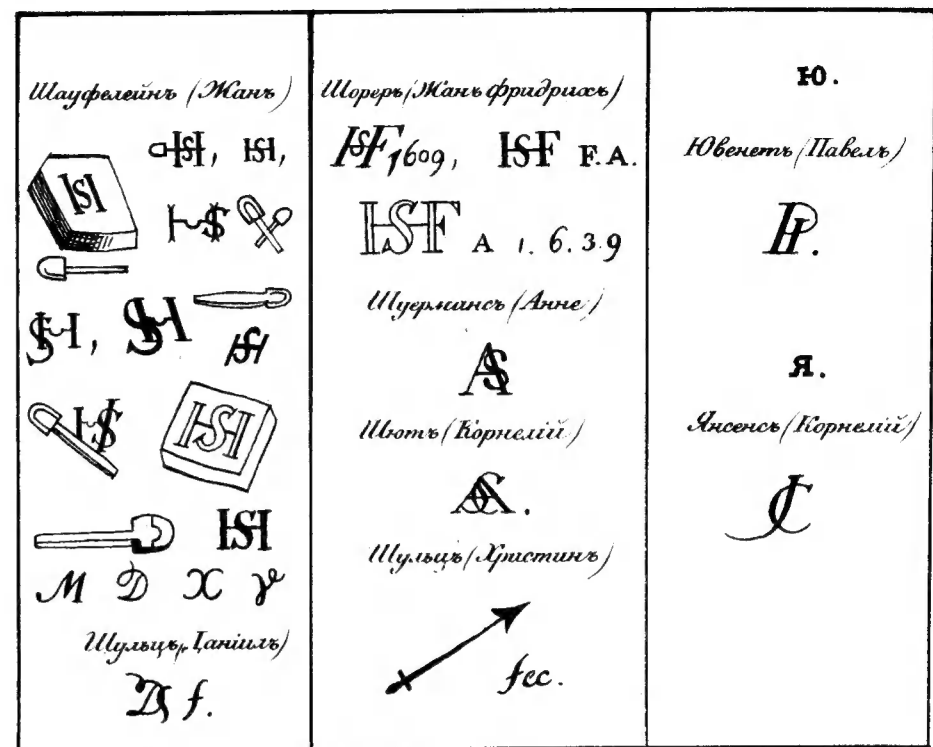 Шауфелейнъ (Жанъ)
HS, HS,
HS
HS
SH, SH
HS
HS
HS
HS
M D X V
Шульцъ (Даніилъ)
DS f.
Шореръ (Жанъ фридрихъ)
HSF 1609, HSF F. A.
HSF A 1. 6. 3 9
Шуермансъ (Анне)
AS
Шютъ (Корнелій)
Шульцъ (Христинъ)
fec.
Ю.
Ювенетъ (Павелъ)
Я.
Янсенсъ (Корнелій)
JC